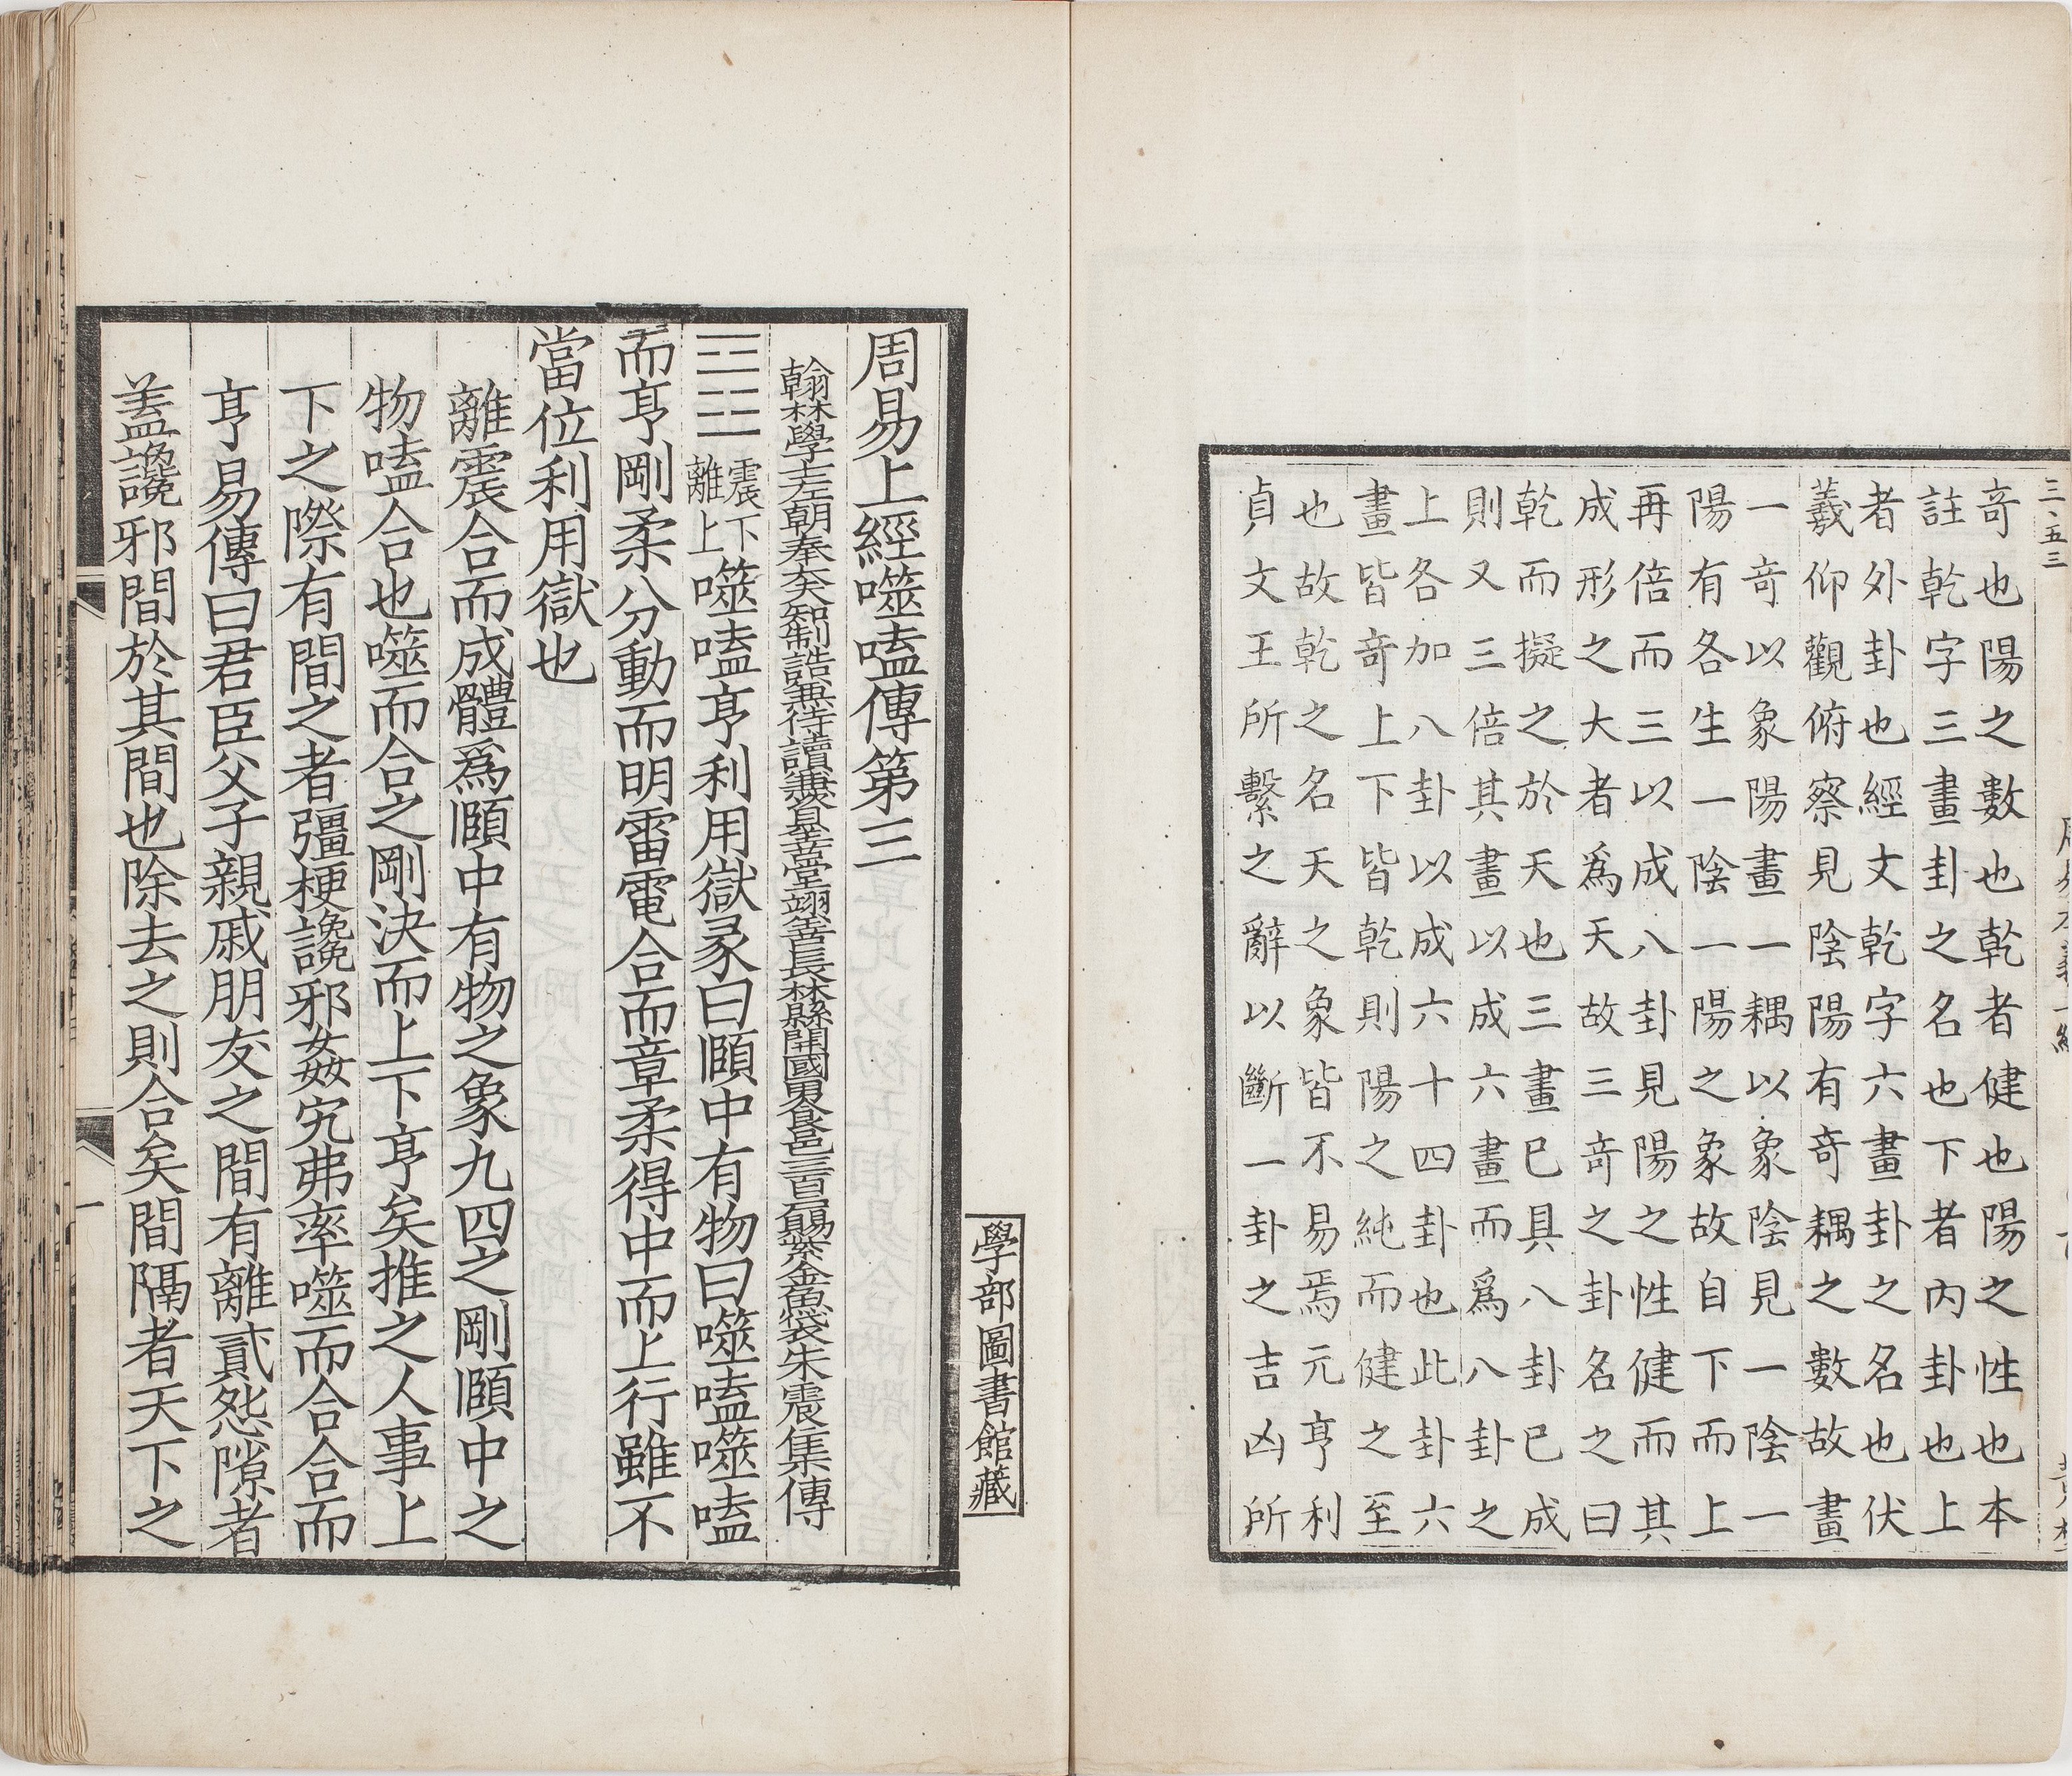 三、五三
奇也陽之數也乾者健也陽之性也本
註乾字三畫卦之名也下者內卦也上
者外卦也經文乾字六畫卦之名也伏
羲仰觀俯察見陰陽有奇耦之數故畫
一奇以象陽畫一耦以象陰見一陰一
陽有各生一陰一陽之象故自下而上
再倍而三以成八卦見陽之性健而其
成形之大者爲天故三奇之卦名之曰
乾而擬之於天也三畫已具八卦已成
則又三倍其畫以成六畫而爲八卦之
上各加八卦以成六十四卦也此卦六
畫皆奇上下皆乾則陽之純而健之至
也故乾之名天之象皆不易焉元亨利
貞文王所繫之辭以斷一卦之吉凶所
學部圖書館藏
周易上經噬嗑傳第三
翰林學士左朝奉大夫知制誥兼侍讀兼資善堂翊善長林縣開國男食邑三百戶賜紫金魚袋朱震集傳
震下
離上
噬嗑亨利用獄彖曰頤中有物曰噬嗑噬嗑
而亨剛柔分動而明雷電合而章柔得中而上行雖不
當位利用獄也
離震合而成體爲頤中有物之象九四之剛頤中之
物嗑合也噬而合之剛決而上下亨矣推之人事上
下之際有間之者彊梗讒邪姦宄弗率噬而合合而
亨易傳曰君臣父子親戚朋友之間有離貳怨隙者
蓋讒邪間於其間也除去之則合矣間隔者天下之
一